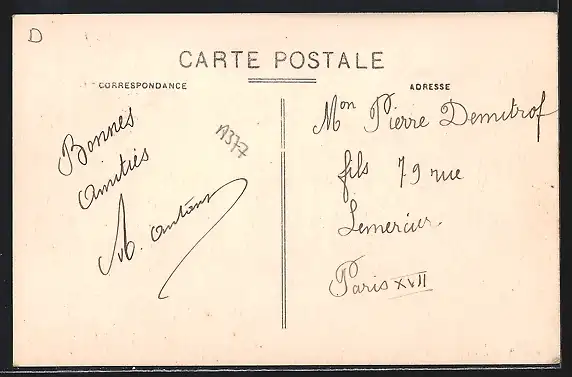 D
CARTE POSTALE
CORRESPONDANCE
ADRESSE
Bonnes
amitiés
A377
Mon Pierre Demitrof
fils 79 rue
Lemercier
Paris XVII